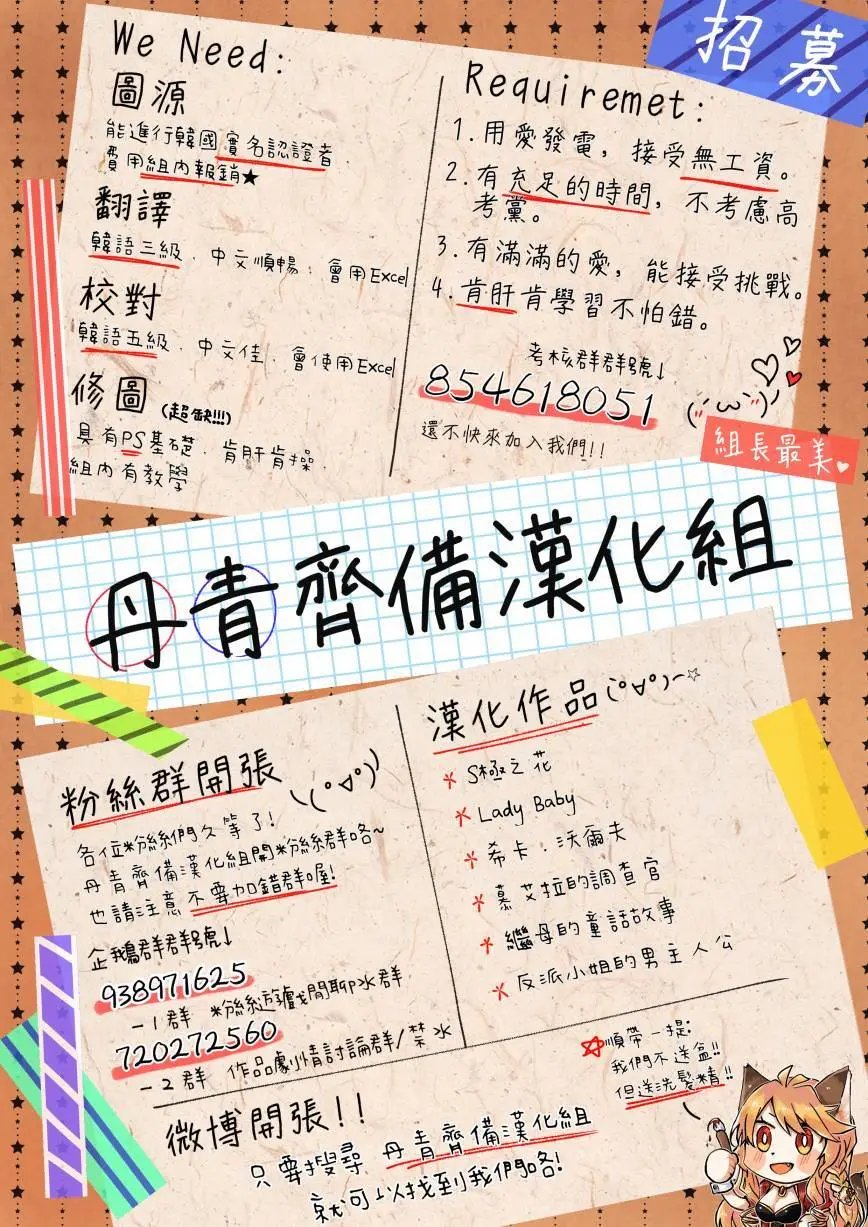 招募
We Need:
圖源
能進行韓國實名認證者.
費用組內報銷★
翻譯
韓語三級、中文順暢、會用Excel
校對
韓語五級、中文佳、會使用Excel
修圖(超缺!!!)
具有PS基礎、肯肝肯操、
組內有教學
Requiremet:
1.用愛發電，接受無工資。
2.有充足的時間，不考慮高
考黨。
3.有滿滿的愛，能接受挑戰。
4.肯肝肯學習不怕錯。
考核群群號↓
854618051
還不快來加入我們!!
組長最美♥
丹青齊備漢化組
粉絲群開張
各位粉絲們久等了!
丹青齊備漢化組開粉絲群咯~
也請注意不要加錯群喔!
企鵝群群號↓
938971625
-1群 粉絲遊戲閒聊水群
720272560
-2群 作品劇情討論群/禁水
漢化作品(°∀°)~☆
S極之花
Lady Baby
希卡·沃爾夫
慕艾拉的調查官
繼母的童話故事
反派小姐的男主人公
順帶一提:
我們不送盆!!
但送洗髮精!!
微博開張!!
只要搜尋 丹青齊備漢化組
就可以找到我們咯!